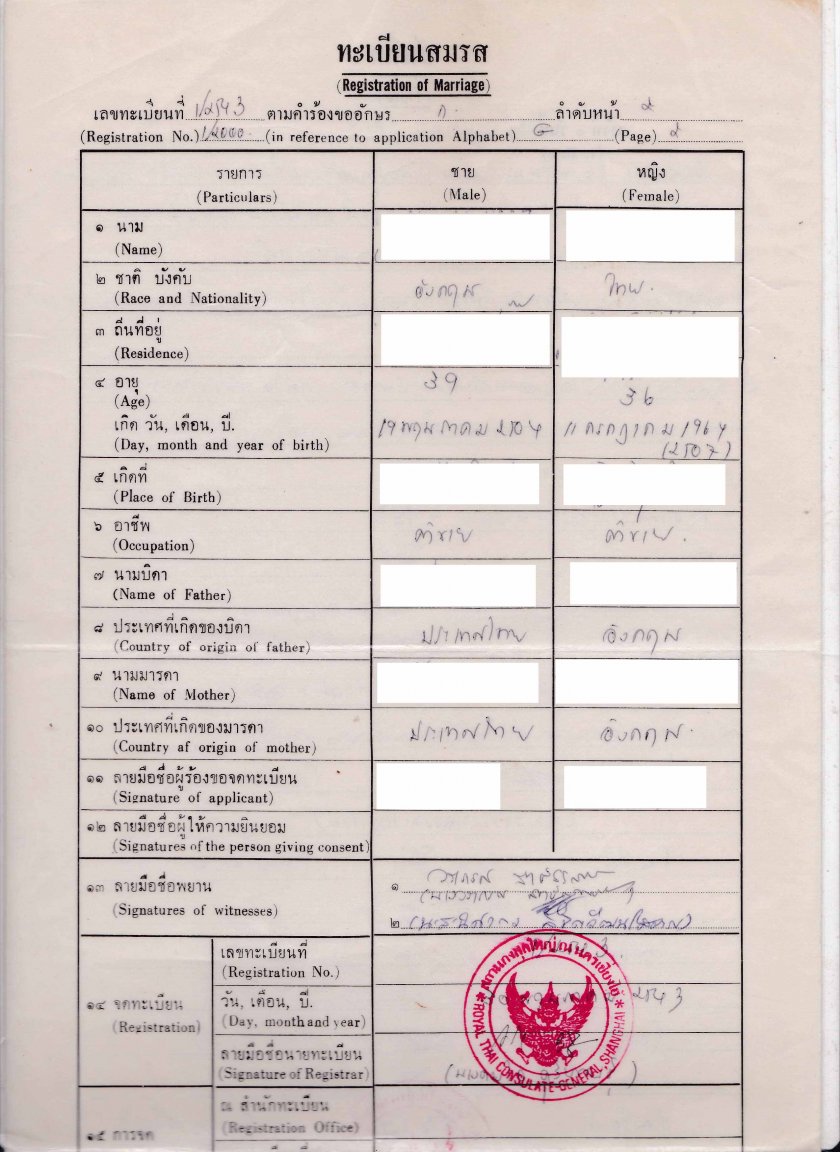 ทะเบียนสมรส
(Registration of Marriage)
เลขทะเบียนที่ 1/2543 ตามคำร้องขออักษร ก. ลำดับหน้า ๙
(Registration No.) 1/2000 (in reference to application Alphabet) G (Page) ๙
รายการ ชาย หญิง
(Particulars) (Male) (Female)
๑ นาม
(Name)
๒ ชาติ บังคับ
(Race and Nationality) อังกฤษ ไทย.
๓ ถิ่นที่อยู่
(Residence)
๔ อายุ 39 36
(Age)
เกิด วัน, เดือน, ปี. 19 พฤษภาคม 2504 11 กรกฎาคม 1964
(Day, month and year of birth) (2507)
๕ เกิดที่
(Place of Birth)
๖ อาชีพ ค้าขาย ค้าขาย.
(Occupation)
๗ นามบิดา
(Name of Father)
๘ ประเทศที่เกิดของบิดา ประเทศไทย อังกฤษ
(Country of origin of father)
๙ นามมารดา
(Name of Mother)
๑๐ ประเทศที่เกิดของมารดา ประเทศไทย อังกฤษ.
(Country af origin of mother)
๑๑ ลายมือชื่อผู้ร้องขอจดทะเบียน
(Signature of applicant)
๑๒ ลายมือชื่อผู้ให้ความยินยอม
(Signatures of the person giving consent)
๑๓ ลายมือชื่อพยาน ๑
(Signatures of witnesses) ๒
เลขทะเบียนที่
(Registration No.)
๑๔ จดทะเบียน วัน, เดือน, ปี. 2543
(Registration) (Day, month and year)
ลายมือชื่อนายทะเบียน
(Signature of Registrar)
สถานกงสุลใหญ่ ณ นครเซี่ยงไฮ้
ROYAL THAI CONSULATE-GENERAL, SHANGHAI
ณ สำนักทะเบียน
(Registration Office)
๑๕ การจด